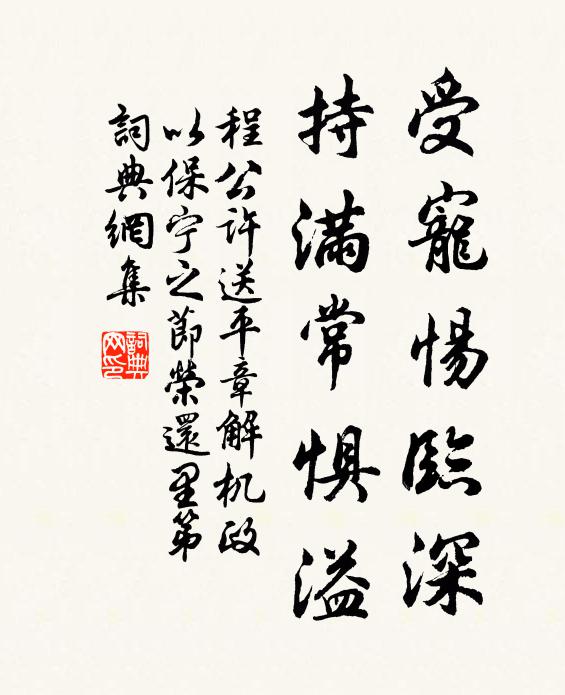 受寵惕臨深
持滿常懼溢
程公許送平章解机政
以保宁之節榮還里第
詞典網集
詞典
网印